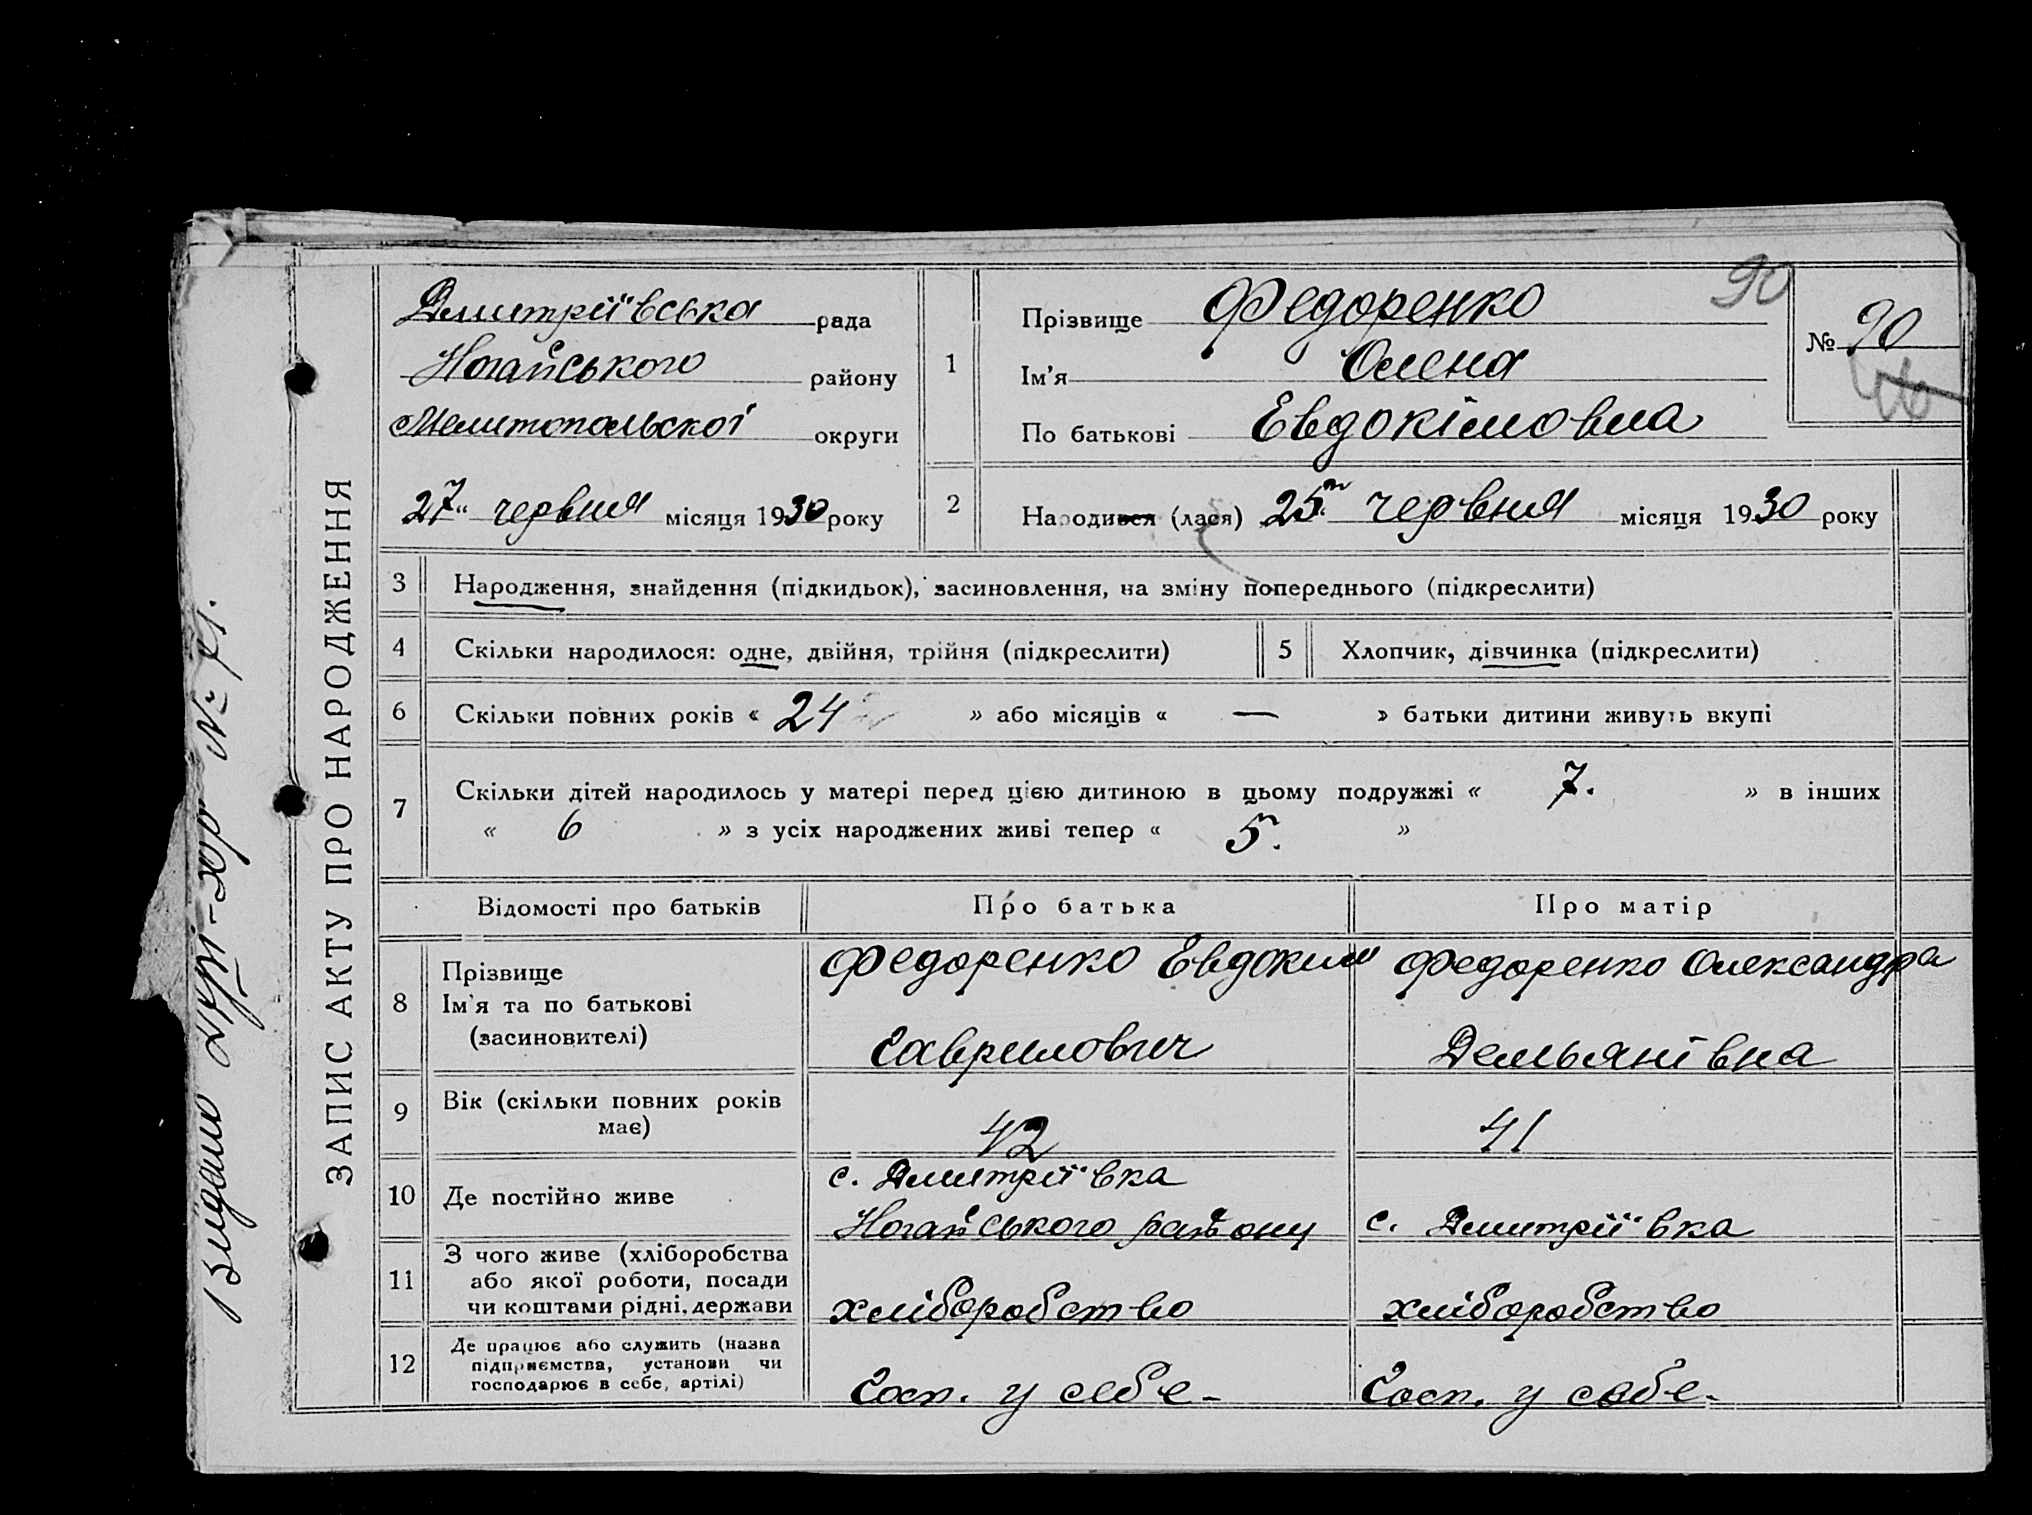 ЗАПИС АКТУ ПРО НАРОДЖЕННЯ
Дмитріївська рада
Ногайського району
Мелитопольскої округи
27 червня місяця 1930 року
90
№ 90
1 Прізвище Федоренко
Ім'я Олена
По батькові Евдокімовна
2 Народився (лася) 25 червня місяця 1930 року
3 Народження, знайдення (підкидьок), засиновлення, на зміну попереднього (підкреслити)
4 Скільки народилося: одне, двійня, трійня (підкреслити) 5 Хлопчик, дівчинка (підкреслити)
6 Скільки повних років « 24 » або місяців « — » батьки дитини живуть вкупі
7 Скільки дітей народилось у матері перед цією дитиною в цьому подружжі « 7. » в інших
« 6 » з усіх народжених живі тепер « 5. »
Відомості про батьків Про батька Про матір
8 Прізвище
Ім'я та по батькові
(засиновителі)
Федоренко Евдоким
Гаврилович
Федоренко Олександра
Демьянівна
9 Вік (скільки повних років
має)
42 41
10 Де постійно живе
с. Дмитріївка
Ногайського району
с. Дмитріївка
11 З чого живе (хліборобства
або якої роботи, посади
чи коштами рідні, держави
хліборобство хліборобство
12 Де працює або служить (назва
підприємства, установи чи
господарює в себе, артілі)
Госп. у себе - Госп. у себе -
Видано № 71.